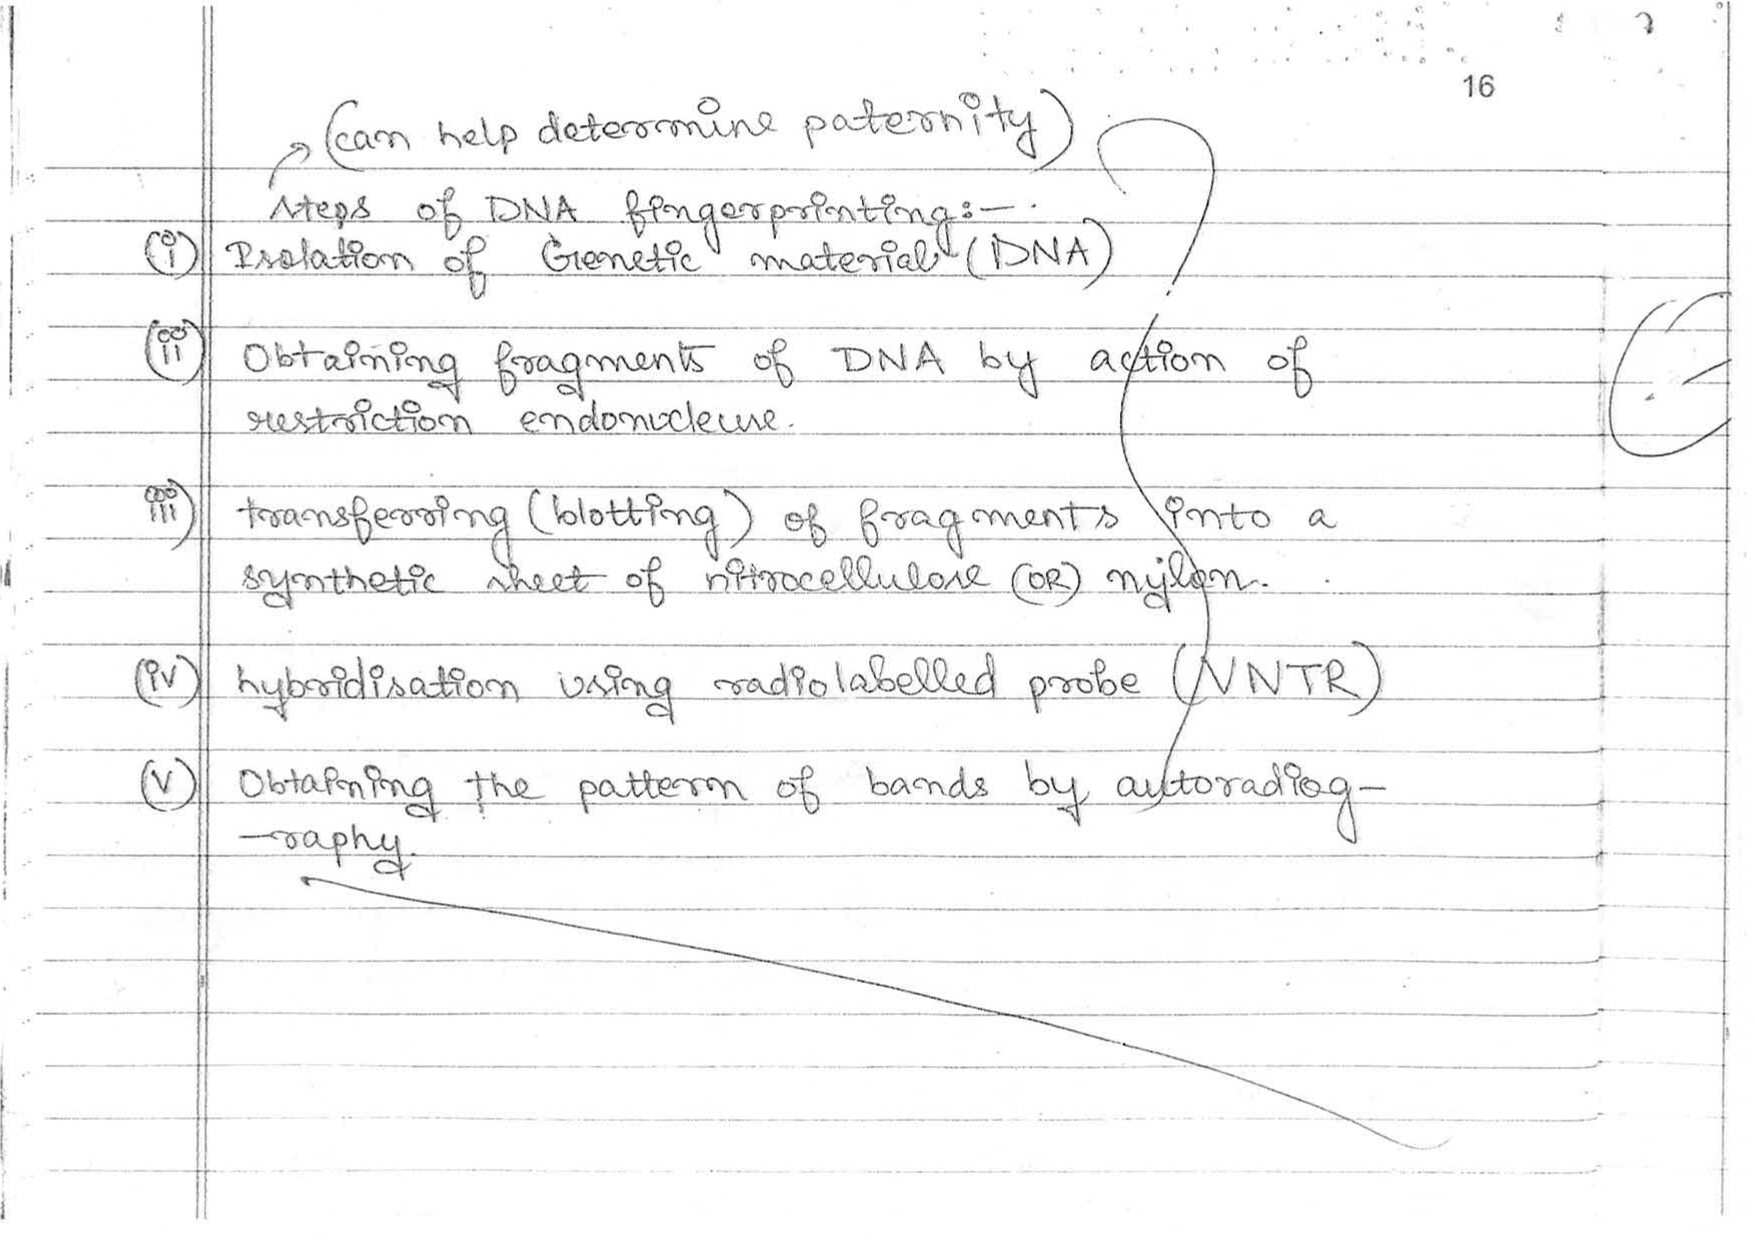 16
(can help determine paternity)
steps of DNA fingerprinting:-
(i) Isolation of Genetic material (DNA)
(ii) Obtaining fragments of DNA by action of
restriction endonuclease.
iii) transferring (blotting) of fragments into a
synthetic sheet of nitrocellulose (OR) nylon.
(iv) hybridisation using radiolabelled probe (VNTR)
(v) Obtaining the pattern of bands by autoradiog-
-raphy.